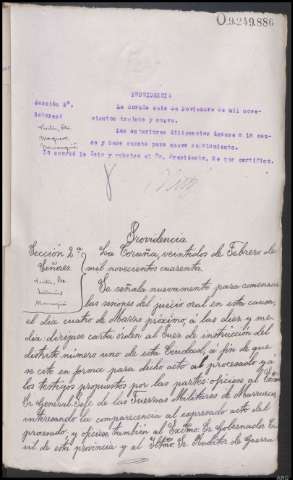 0.9.249.886
PROVIDENCIA
Sección 2ª.
La Coruña siete de Noviembre de mil nove-
Señores:
cientos treinta y nueve.
Las anteriores diligencias únanse a la cau-
sa y dese cuenta para nuevo señalamiento.
Lo acordó la Sala y rubrica el Sr. Presidente, de que certifico.
Providencia
Sección 2ª
La Coruña, veintidos de Febrero de
Señores
mil novecientos cuarenta.
Se señala nuevamente para comenzar
las sesiones del juicio oral en esta causa,
el día cuatro de Marzo próximo, a las diez y me-
dia; dirijase carta órden al Juez de instrucción del
distrito número uno de esta Ciudad, a fin de que
se cite en forma para dicho acto al procesado y a
los testigos propuestos por las partes; oficiese al Excmo
Sr General Jefe de las Fuerzas Militares de Marruecos,
interesando la comparecencia al expresado acto del
procesado, y oficiese también al Excmo. Sr Gobernador Ci-
vil de esta provincia y al Iltmo. Sr. Auditor de Guerra